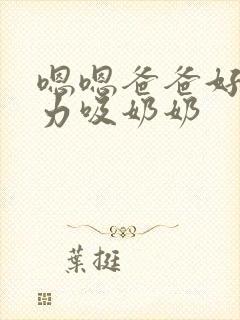 嗯嗯爸爸好
力吸奶奶
葉挺